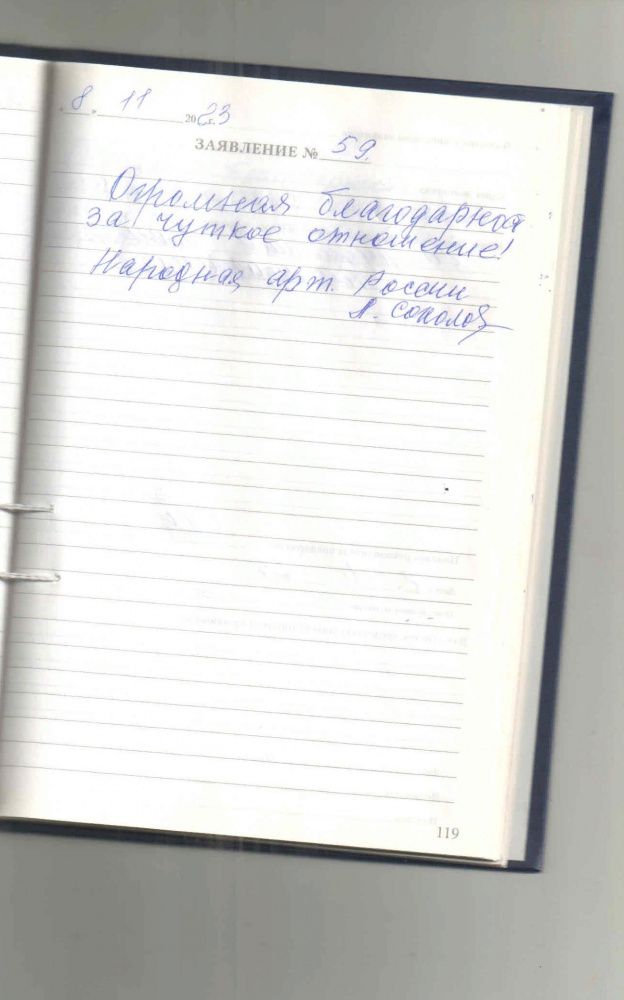 «8» 11 2023 г.
ЗАЯВЛЕНИЕ № 59.
Огромная благодарност
за чуткое отношение!
Народная арт. России
Соколов
119